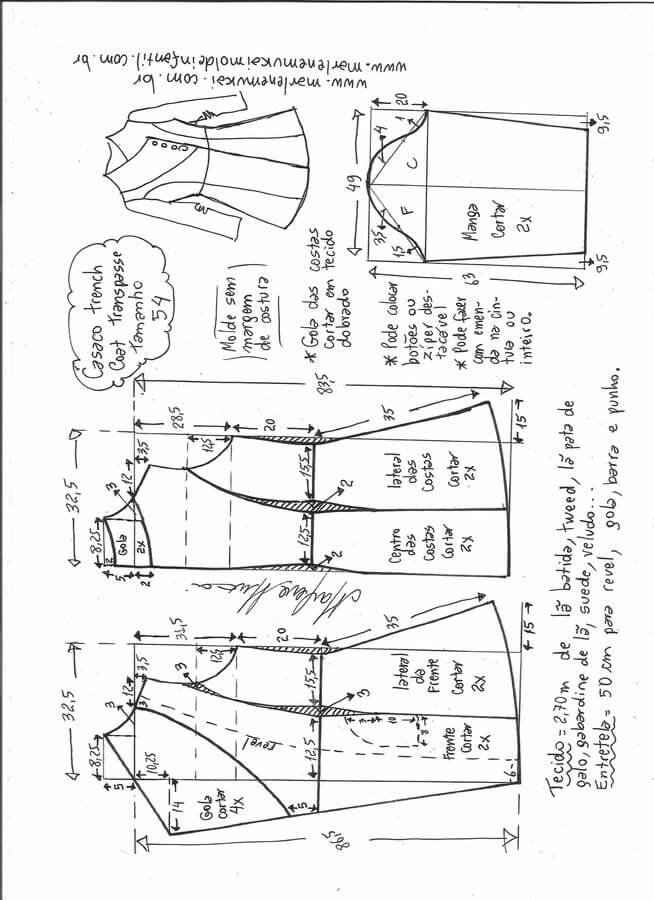 www.marlenemukai.com.br
www.marlenemukaimoldeinfantil.com.br
Casaco trench
Coat transpasse
Tamanho
54
Molde sem
margem
de costura
* Gola das costas
Cortar em tecido
dobrado
* Pode colocar
botões ou
zíper des-
tacável
* Pode fazer
com emen-
da na cin-
tura ou
inteiro.
49
20
4
1
C
F
3,5
1,5
Manga
Cortar
2x
63
9,5
9,5
32,5
8,25
3
12
3,5
28,5
12,5
20
83,5
35
15
Gola
2x
2
5
2
15,5
12,5
2
2
lateral
das
Costas
Cortar
2x
Centro
das
Costas
Cortar
2x
Marlene Mukai
32,5
8,25
3
12
3,5
3
3
31,5
12,5
20
35
15
5
10,25
14
Gola
cortar
4x
revel
5
15,5
12,5
3
3
10
8
lateral
da
Frente
Cortar
2x
Frente
Cortar
2x
6
86,5
Tecido = 2,70 m de lã batida, tweed, lã pata de
galo, gabardine de lã, suede, veludo...
Entretela = 50 cm para revel, gola, barra e punho.